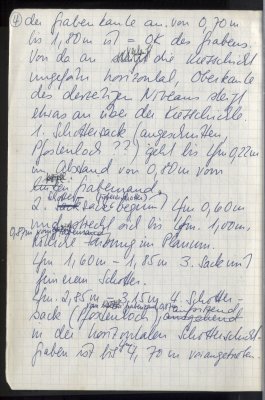 ④ der Grabenkante an. von 0,70 m
bis 1,80 m ist = OK des Grabens.
Von da an die Kiesschicht
ungefähr horizontal, Oberkante
des derzeitigen Niveaus steigt
etwas an über der Kiesschicht.
1. Schottersack (angeschnitten,
Pfostenloch ??) geht bis lfm 0,22m
im Abstand von 0,80m vom
Grabenrand.
2. sack beginnt lfm 0,60m
und streckt sich bis lfm. 1,00m,
0,87m von
im Planum.
lfm 1,60m – 1,85m 3. Sack mit
feinerem Schotter.
lfm. 2,85m – 3,15m 4. Schotter-
sack (Pfostenloch),
in der horizontalen Schotterschicht.
Graben ist bis 4,70 m vorangetrieben.